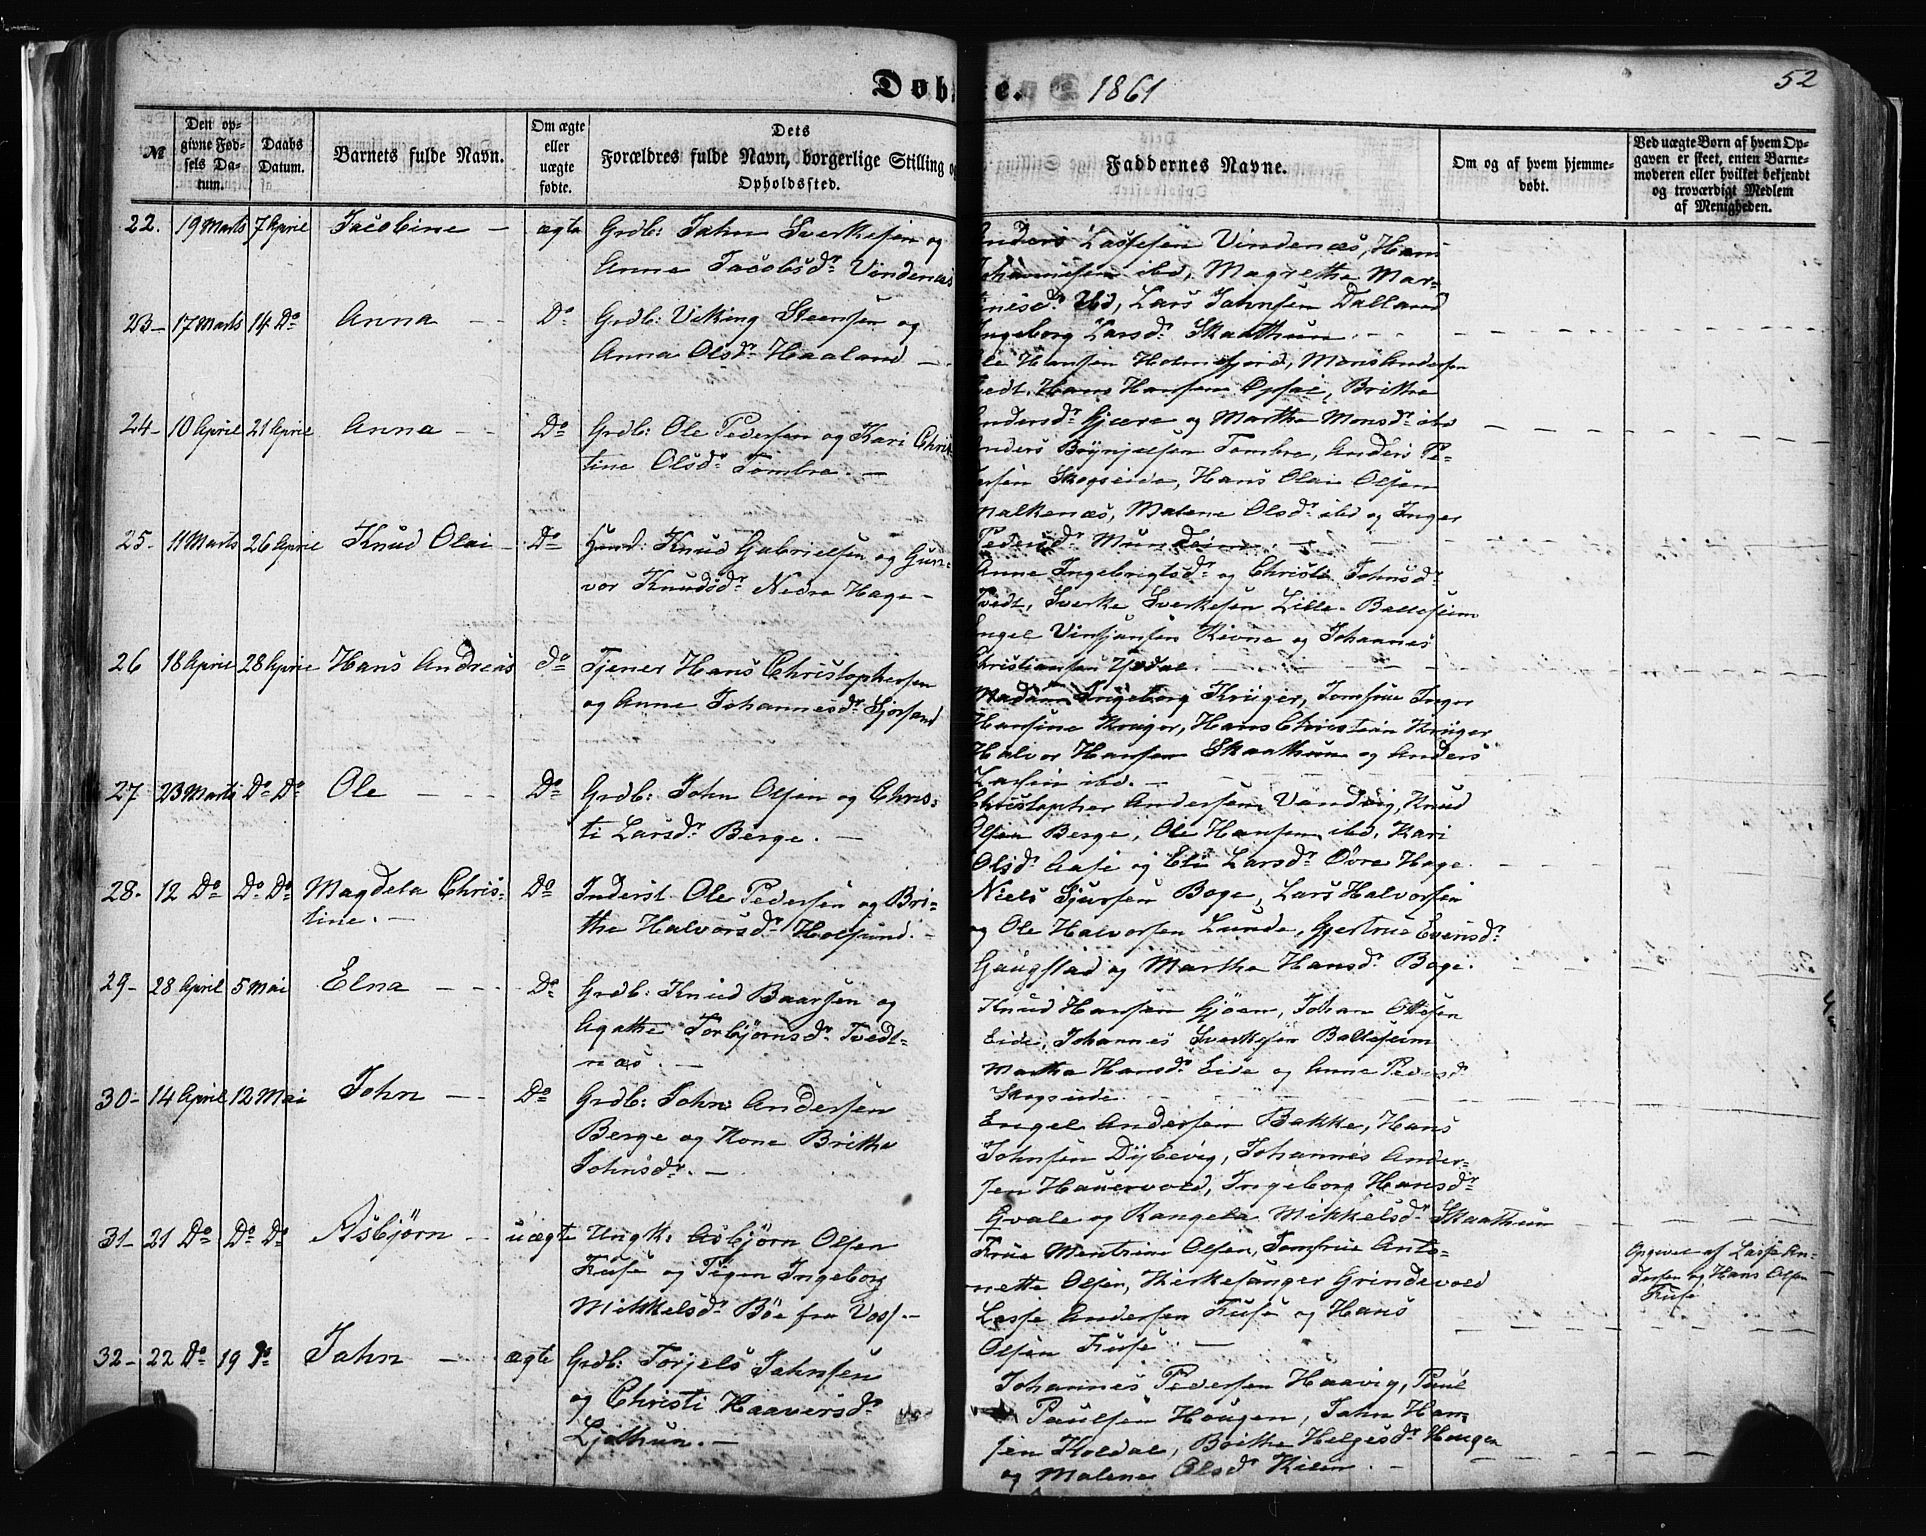 Døbte. 1861
52
№
Den opgivne Fødsels Datum.
Daabs Datum.
Barnets fulde Navn.
Om ægte eller uægte fødte.
Dets Forældres fulde Navn, borgerlige Stilling og Opholdssted.
Faddernes Navne.
Om og af hvem hjemmedøbt.
Ved uægte Børn af hvem Opgaven er skeet, enten Barnemoderen eller hvilket bekjendt og troværdigt Medlem af Menigheden.
22. 19 Marts 7 April Jacobine – ægte Grdb: John Sverkesen og
Anne Jacobsdr. Vindenæs
Anders Lassesen Vindenæs, Hans
Johannesen ibd, Magrethe Mar-
tinisdr. ibd, Lars Johnsen Dalland
Ingeborg Larsdr. Skaathun
23 – 17 Marts 14 Do Anna – – Do Grdb: Viking Steensen og
Anna Olsdr. Haaland –
Ole Hansen Holmefjord, Mons Andersen
Tvedt, Hans Hansen Opsal, Brithe
Andersdr. Gjære og Martha Monsdr. ibd
24 – 10 April 21 April Anna – – Do Grdb: Ole Pedersen og Kari Chris-
tine Olsdr. Tombre. –
Anders Brynjelsen Tombre, Anders Pe-
dersen Skogseide, Hans Olai Olsen
Malkenæs, Malene Olsdr. ibd og Inger
Pedersdr. Mundheim
25 – 11 Marts 26 April Knud Olai – Do Huusd: Knud Gabrielsen og Gun-
vor Knudsdr. Nedre Hage –
Anne Ingebrigtsdr. og Christi Johnsdr.
Tvedt, Sverke Sverkesen Lille-Balleseim
Engel Vinsjansen Rivne og Johannes
Christiansen Ysdal
26 18 April 28 April Hans Andreas do Tjener Hans Christophersen
og Anne Johannesdr. Gjøsand
Madam Ingeborg Krüger, Jomfrue Inger
Hansine Krüger, Hans Christian Krüger
Halvor Hansen Skaathun og Anders
Larsen ibd. –
27 23 Marts Do Do Ole – – Do Grdb: John Olsen og Chris-
ti Larsdr. Berge. –
Christopher Andersen Vandvig, Knud
Olsen Berge, Ole Hansen ibd, Kari
Olsdr. Aase og Eli Larsdr. Øvre Hage
28. 12 Do Do Do Magdela Chris-
tine. –
Do Inderst Ole Pedersen og Bri-
the Halvorsdr. Holsund. –
Niels Sjursen Boge, Lars Halvorsen
og Ole Halvorsen Lunde, Gjertrue Evensdr.
Gaugstad og Martha Hansdr. Boge.
29 – 28 April 5 Mai Elna – – – Do Grdb: Knud Baarsen og
Agathe Torbjørnsdr. Tvedt-
næs. –
Knud Hansen Gjøen, Johan Ottesen
Eide, Johannes Sverkesen Balleseim
Martha Hansdr. Eide og Anne Pedersdr.
Skogseide
30 – 14 April 12 Mai John – – Do Grdb: John Andersen
Berge og Kone Brithe
Johnsdr. –
Engel Andersen Bakke, Hans
Johnsen Dybevig, Johannes Ander-
sen Hauervold, Ingeborg Hansdr.
Gvale og Rangela Mikkelsdr. Skaathun
31 – 21 Do Do Do Asbjørn – uægte Ungk: Asbjørn Olsen
Fuse og Pigen Ingeborg
Mikkelsdr. Bøe fra Voss. –
Frue Mentrine Olsen, Jomfrue Anto-
nette Olsen, Kirkesanger Grindevold
Lasse Andersen Fuse og Hans
Olsen Fuse. –
Opgivet af Lasse An-
dersen og Hans Olsen
Fuse
32 – 22 Do 19 Do John – ægte Grdb: Torjels Johnsen
og Christi Haaversdr.
Ljothun. –
Johannes Pedersen Haavig, Paul
Paulsen Hougen, John Han-
sen Holdal, Brithe Helgesdr. Hougen
og Malene Olsdr. Kilen. –